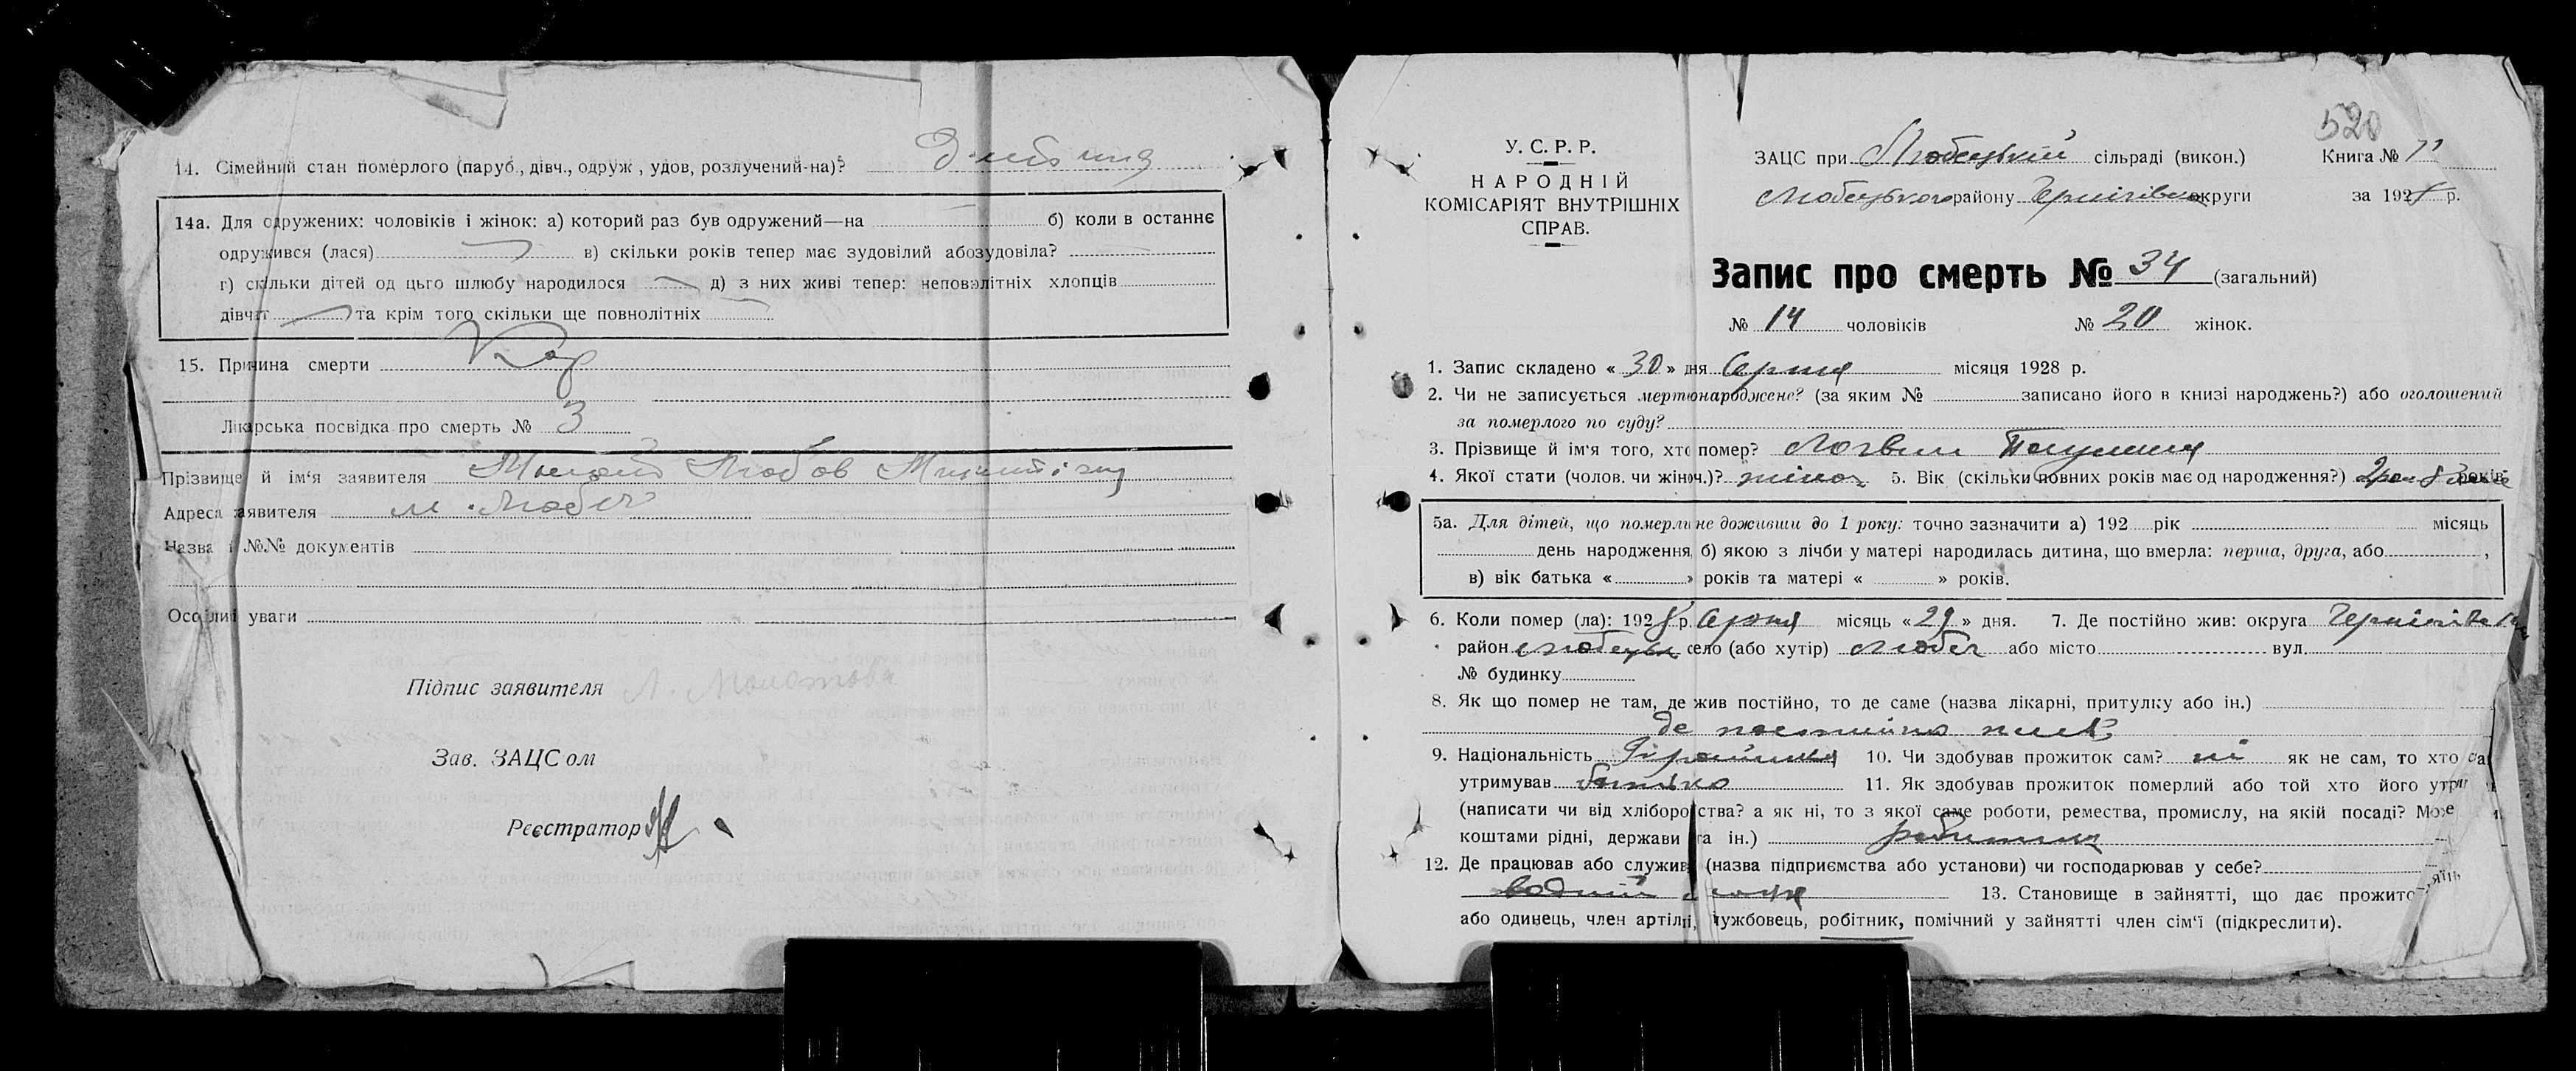 14. Сімейний стан померлого (паруб., дівч., одруж , удов, розлучений-на)? Дитина
14а. Для одружених: чоловіків і жінок: а) которий раз був одружений—на б) коли в останнє
одружився (лася) в) скільки років тепер має зудовілий абозудовіла?
г) скільки дітей од цього шлюбу народилося д) з них живі тепер: неповнолітніх хлопців
дівчат та крім того скільки ще повнолітніх
15. Причина смерти Кор
Лікарська посвідка про смерть № 3
Прізвище й ім'я заявителя Любов
Адреса заявителя м. Любеч
Назва і №№ документів
Особливі уваги
Підпис заявителя Л.
Зав. ЗАЦСом
Реєстратор
520
У. С. Р. Р.
НАРОДНІЙ
КОМІСАРІЯТ ВНУТРІШНІХ
СПРАВ.
ЗАЦС при Любецькій сільраді (викон.) Книга №
Любецького району Чернігівськ округи за 192 р.
Запис про смерть № 34 (загальний)
№ 14 чоловіків № 20 жінок.
1. Запис складено « 30 » дня Серпня місяця 1928 р.
2. Чи не записується мертвонароджене? (за яким № записано його в книзі народжень?) або оголошений
за померлого по суду?
3. Прізвище й ім'я того, хто помер? Логвин
4. Якої стати (чолов. чи жіноч.)? жіноч 5. Вік (скільки повних років має од народження?) 2 років
5а. Для дітей, що померли не доживши до 1 року: точно зазначити а) 192 рік місяць
день народження, б) якою з лічби у матері народилась дитина, що вмерла: перша, друга, або ,
в) вік батька « » років та матері « » років.
6. Коли помер (ла): 1928 р. Серпня місяць « 29 » дня. 7. Де постійно жив: округа Чернігівськ
район Любецьк село (або хутір) Любеч або місто вул.
№ будинку
8. Як що помер не там, де жив постійно, то де саме (назва лікарні, притулку або ін.)
де постийно жив
9. Національність Українка 10. Чи здобував прожиток сам? ні як не сам, то хто
утримував батько 11. Як здобував прожиток померлий або той хто його
(написати чи від хліборобства? а як ні, то з якої саме роботи, ремества, промислу, на якій посаді? Може
коштами рідні, держави та ін.) робитник
12. Де працював або служив (назва підприємства або установи) чи господарював у себе?
водний 13. Становище в зайнятті, що дає
або одинець, член артілі, службовець, робітник, помічний у зайнятті член сім'ї (підкреслити).